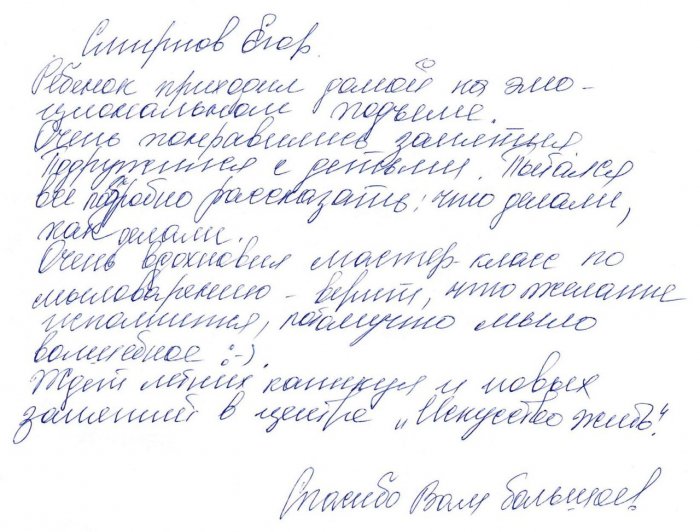 Смирнов Егор.
Ребенок приходил домой на эмо-
циональном подъеме.
Очень понравились занятия
Подружился с детьми. Пытался
все подробно рассказать: что делали,
как делали.
Очень вдохновил мастер-класс по
мыловарению – верит, что желание
исполнится, потому что мыло
волшебное :-).
Ждем летних каникул и новых
занятий в центре „Искусство жить“.
Спасибо Вам большое!